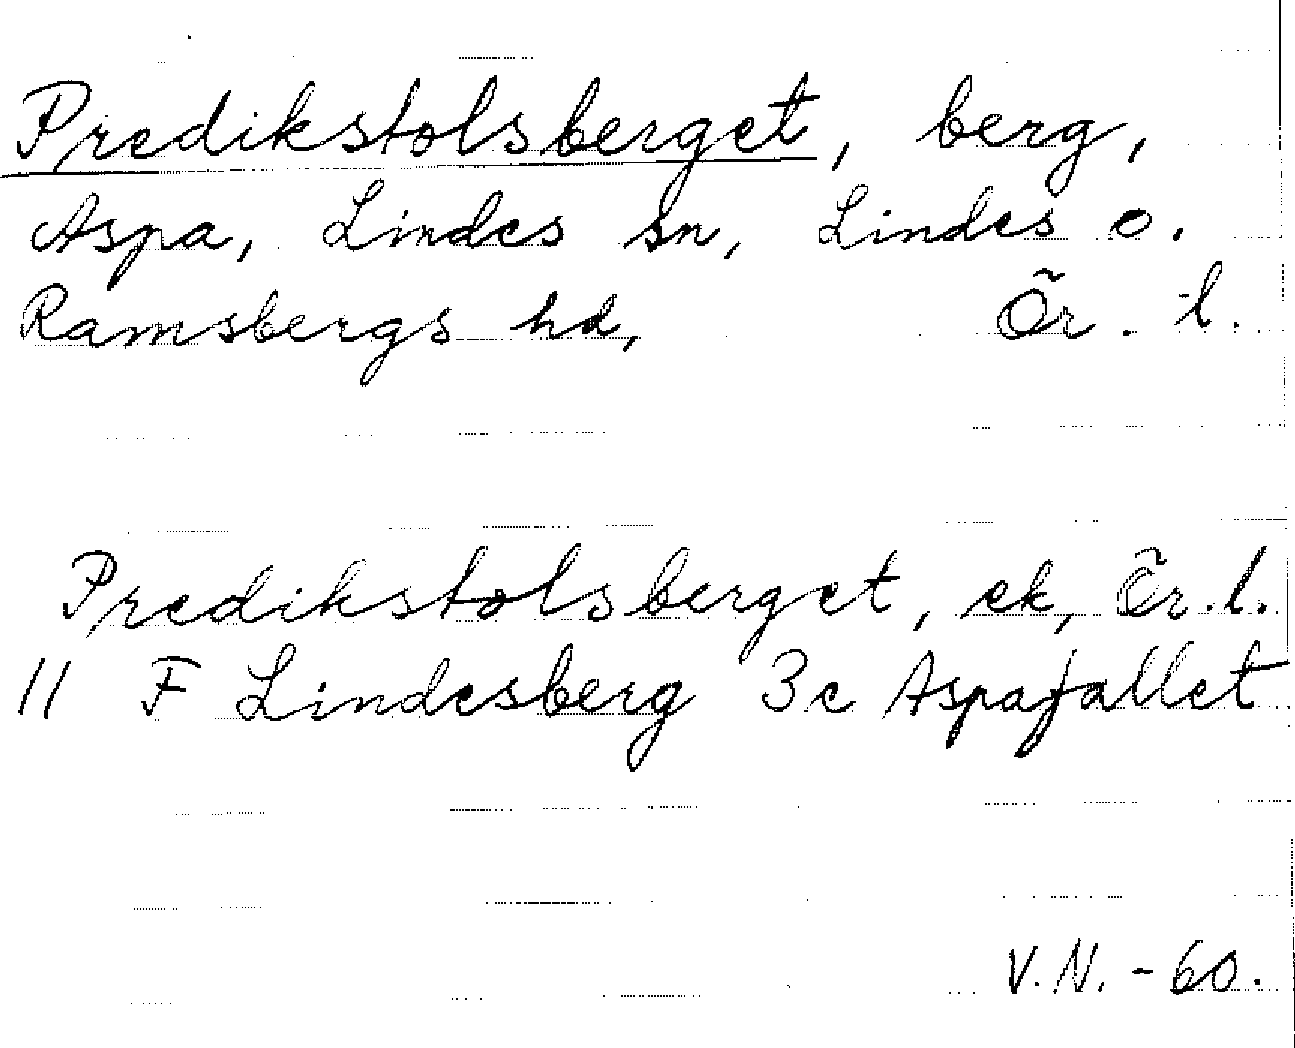 Predikstolsberget, berg,
Aspa, Lindes sn, Lindes o.
Ramsbergs hd, Ör. l.
Predikstolsberget, ek, Ör. l.
11 F Lindesberg 3c Aspafallet
V.N. -60.